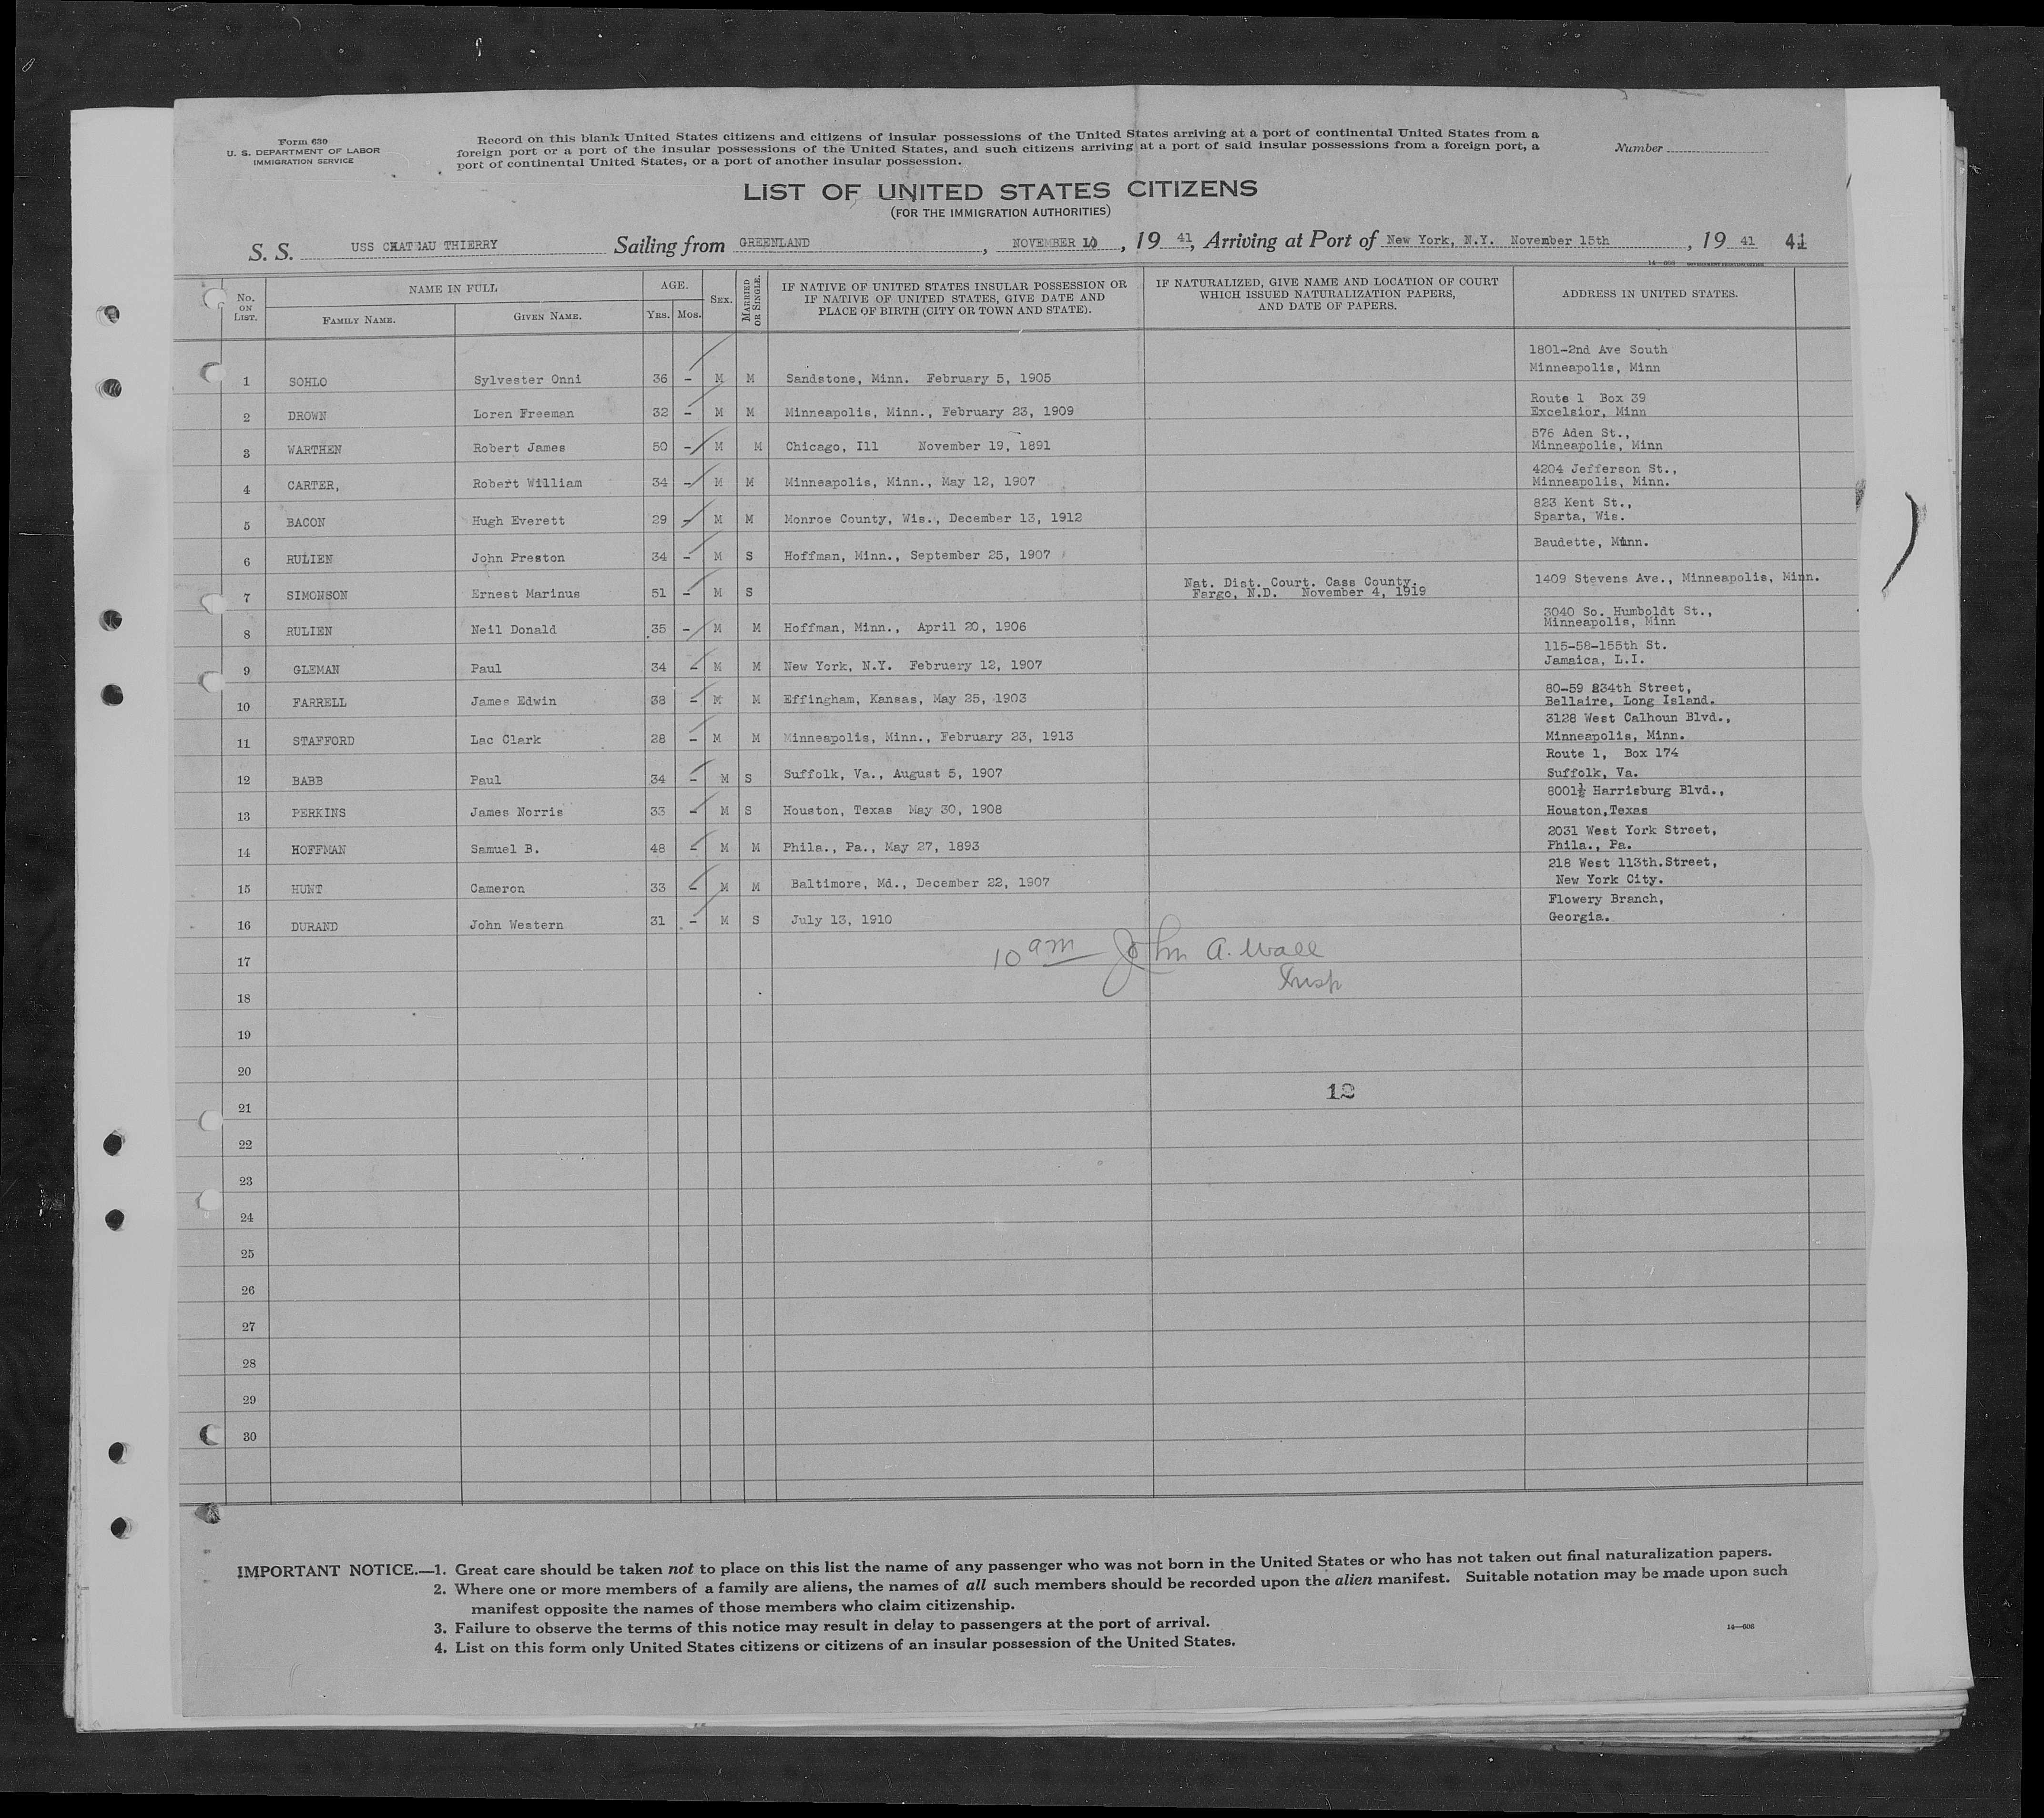 Form 630
U. S. DEPARTMENT OF LABOR
IMMIGRATION SERVICE
Record on this blank United States citizens and citizens of insular possessions of the United States arriving at a port of continental United States from a
foreign port or a port of the insular possessions of the United States, and such citizens arriving at a port of said insular possessions from a foreign port, a
port of continental United States, or a port of another insular possession.
Number
LIST OF UNITED STATES CITIZENS
(FOR THE IMMIGRATION AUTHORITIES)
S. S. USS CHATEAU THIERRY Sailing from GREENLAND, NOVEMBER 10, 19 41, Arriving at Port of New York, N.Y. November 15th, 19 41 41
14—608 GOVERNMENT PRINTING OFFICE
No. ON LIST. NAME IN FULL AGE. SEX. MARRIED OR SINGLE. IF NATIVE OF UNITED STATES INSULAR POSSESSION OR IF NATIVE OF UNITED STATES, GIVE DATE AND PLACE OF BIRTH (CITY OR TOWN AND STATE). IF NATURALIZED, GIVE NAME AND LOCATION OF COURT WHICH ISSUED NATURALIZATION PAPERS, AND DATE OF PAPERS. ADDRESS IN UNITED STATES.
FAMILY NAME. GIVEN NAME. YRS. MOS.
1801-2nd Ave South
1 SOHLO Sylvester Onni 36 - M M Sandstone, Minn. February 5, 1905 Minneapolis, Minn
Route 1 Box 39
2 DROWN Loren Freeman 32 - M M Minneapolis, Minn., February 23, 1909 Excelsior, Minn
576 Aden St.,
3 WARTHEN Robert James 50 - M M Chicago, Ill November 19, 1891 Minneapolis, Minn
4204 Jefferson St.,
4 CARTER, Robert William 34 - M M Minneapolis, Minn., May 12, 1907 Minneapolis, Minn.
823 Kent St.,
5 BACON Hugh Everett 29 - M M Monroe County, Wis., December 13, 1912 Sparta, Wis.
6 RULIEN John Preston 34 - M S Hoffman, Minn., September 25, 1907 Baudette, Minn.
Nat. Dist. Court. Cass County. 1409 Stevens Ave., Minneapolis, Minn.
7 SIMONSON Ernest Marinus 51 - M S Fargo, N.D. November 4, 1919
3040 So. Humboldt St.,
8 RULIEN Neil Donald 35 - M M Hoffman, Minn., April 20, 1906 Minneapolis, Minn
115-58-155th St.
9 GLEMAN Paul 34 - M M New York, N.Y. Februery 12, 1907 Jamaica, L.I.
80-59 234th Street,
10 FARRELL James Edwin 38 - M M Effingham, Kansas, May 25, 1903 Bellaire, Long Island.
3128 West Calhoun Blvd.,
11 STAFFORD Lac Clark 28 - M M Minneapolis, Minn., February 23, 1913 Minneapolis, Minn.
Route 1, Box 174
12 BABB Paul 34 - M S Suffolk, Va., August 5, 1907 Suffolk, Va.
8001½ Harrisburg Blvd.,
13 PERKINS James Norris 33 - M S Houston, Texas May 30, 1908 Houston,Texas
2031 West York Street,
14 HOFFMAN Samuel B. 48 - M M Phila., Pa., May 27, 1893 Phila., Pa.
218 West 113th.Street,
15 HUNT Cameron 33 - M M Baltimore, Md., December 22, 1907 New York City.
Flowery Branch,
16 DURAND John Western 31 - M S July 13, 1910 Georgia.
17 10 am John A. Wall
18 Insp
19
20
12
21
22
23
24
25
26
27
28
29
30
IMPORTANT NOTICE.—1. Great care should be taken not to place on this list the name of any passenger who was not born in the United States or who has not taken out final naturalization papers.
2. Where one or more members of a family are aliens, the names of all such members should be recorded upon the alien manifest. Suitable notation may be made upon such
manifest opposite the names of those members who claim citizenship.
3. Failure to observe the terms of this notice may result in delay to passengers at the port of arrival.
4. List on this form only United States citizens or citizens of an insular possession of the United States.
14—608